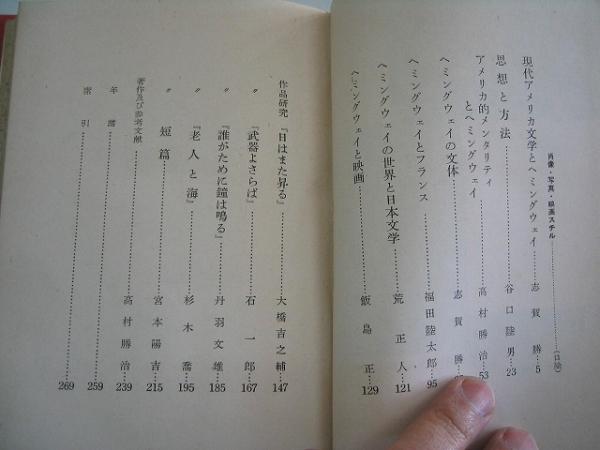 肖像・写真・映画スチル……(口絵)
現代アメリカ文学とヘミングウェイ……志賀勝…5
思想と方法……谷口陸男…23
アメリカ的メンタリティ
とヘミングウェイ……高村勝治…53
ヘミングウェイの文体……志賀勝…
ヘミングウェイとフランス……福田陸太郎…95
ヘミングウェイの世界と日本文学……荒正人…121
ヘミングウェイと映画……飯島正…129
作品研究『日はまた昇る』……大橋吉之輔…147
〃『武器よさらば』……石一郎…167
〃『誰がために鐘は鳴る』……丹羽文雄…185
〃『老人と海』……杉木喬…195
〃短篇……宮本陽吉…215
著作及び参考文献……高村勝治…239
年譜……259
索引……269